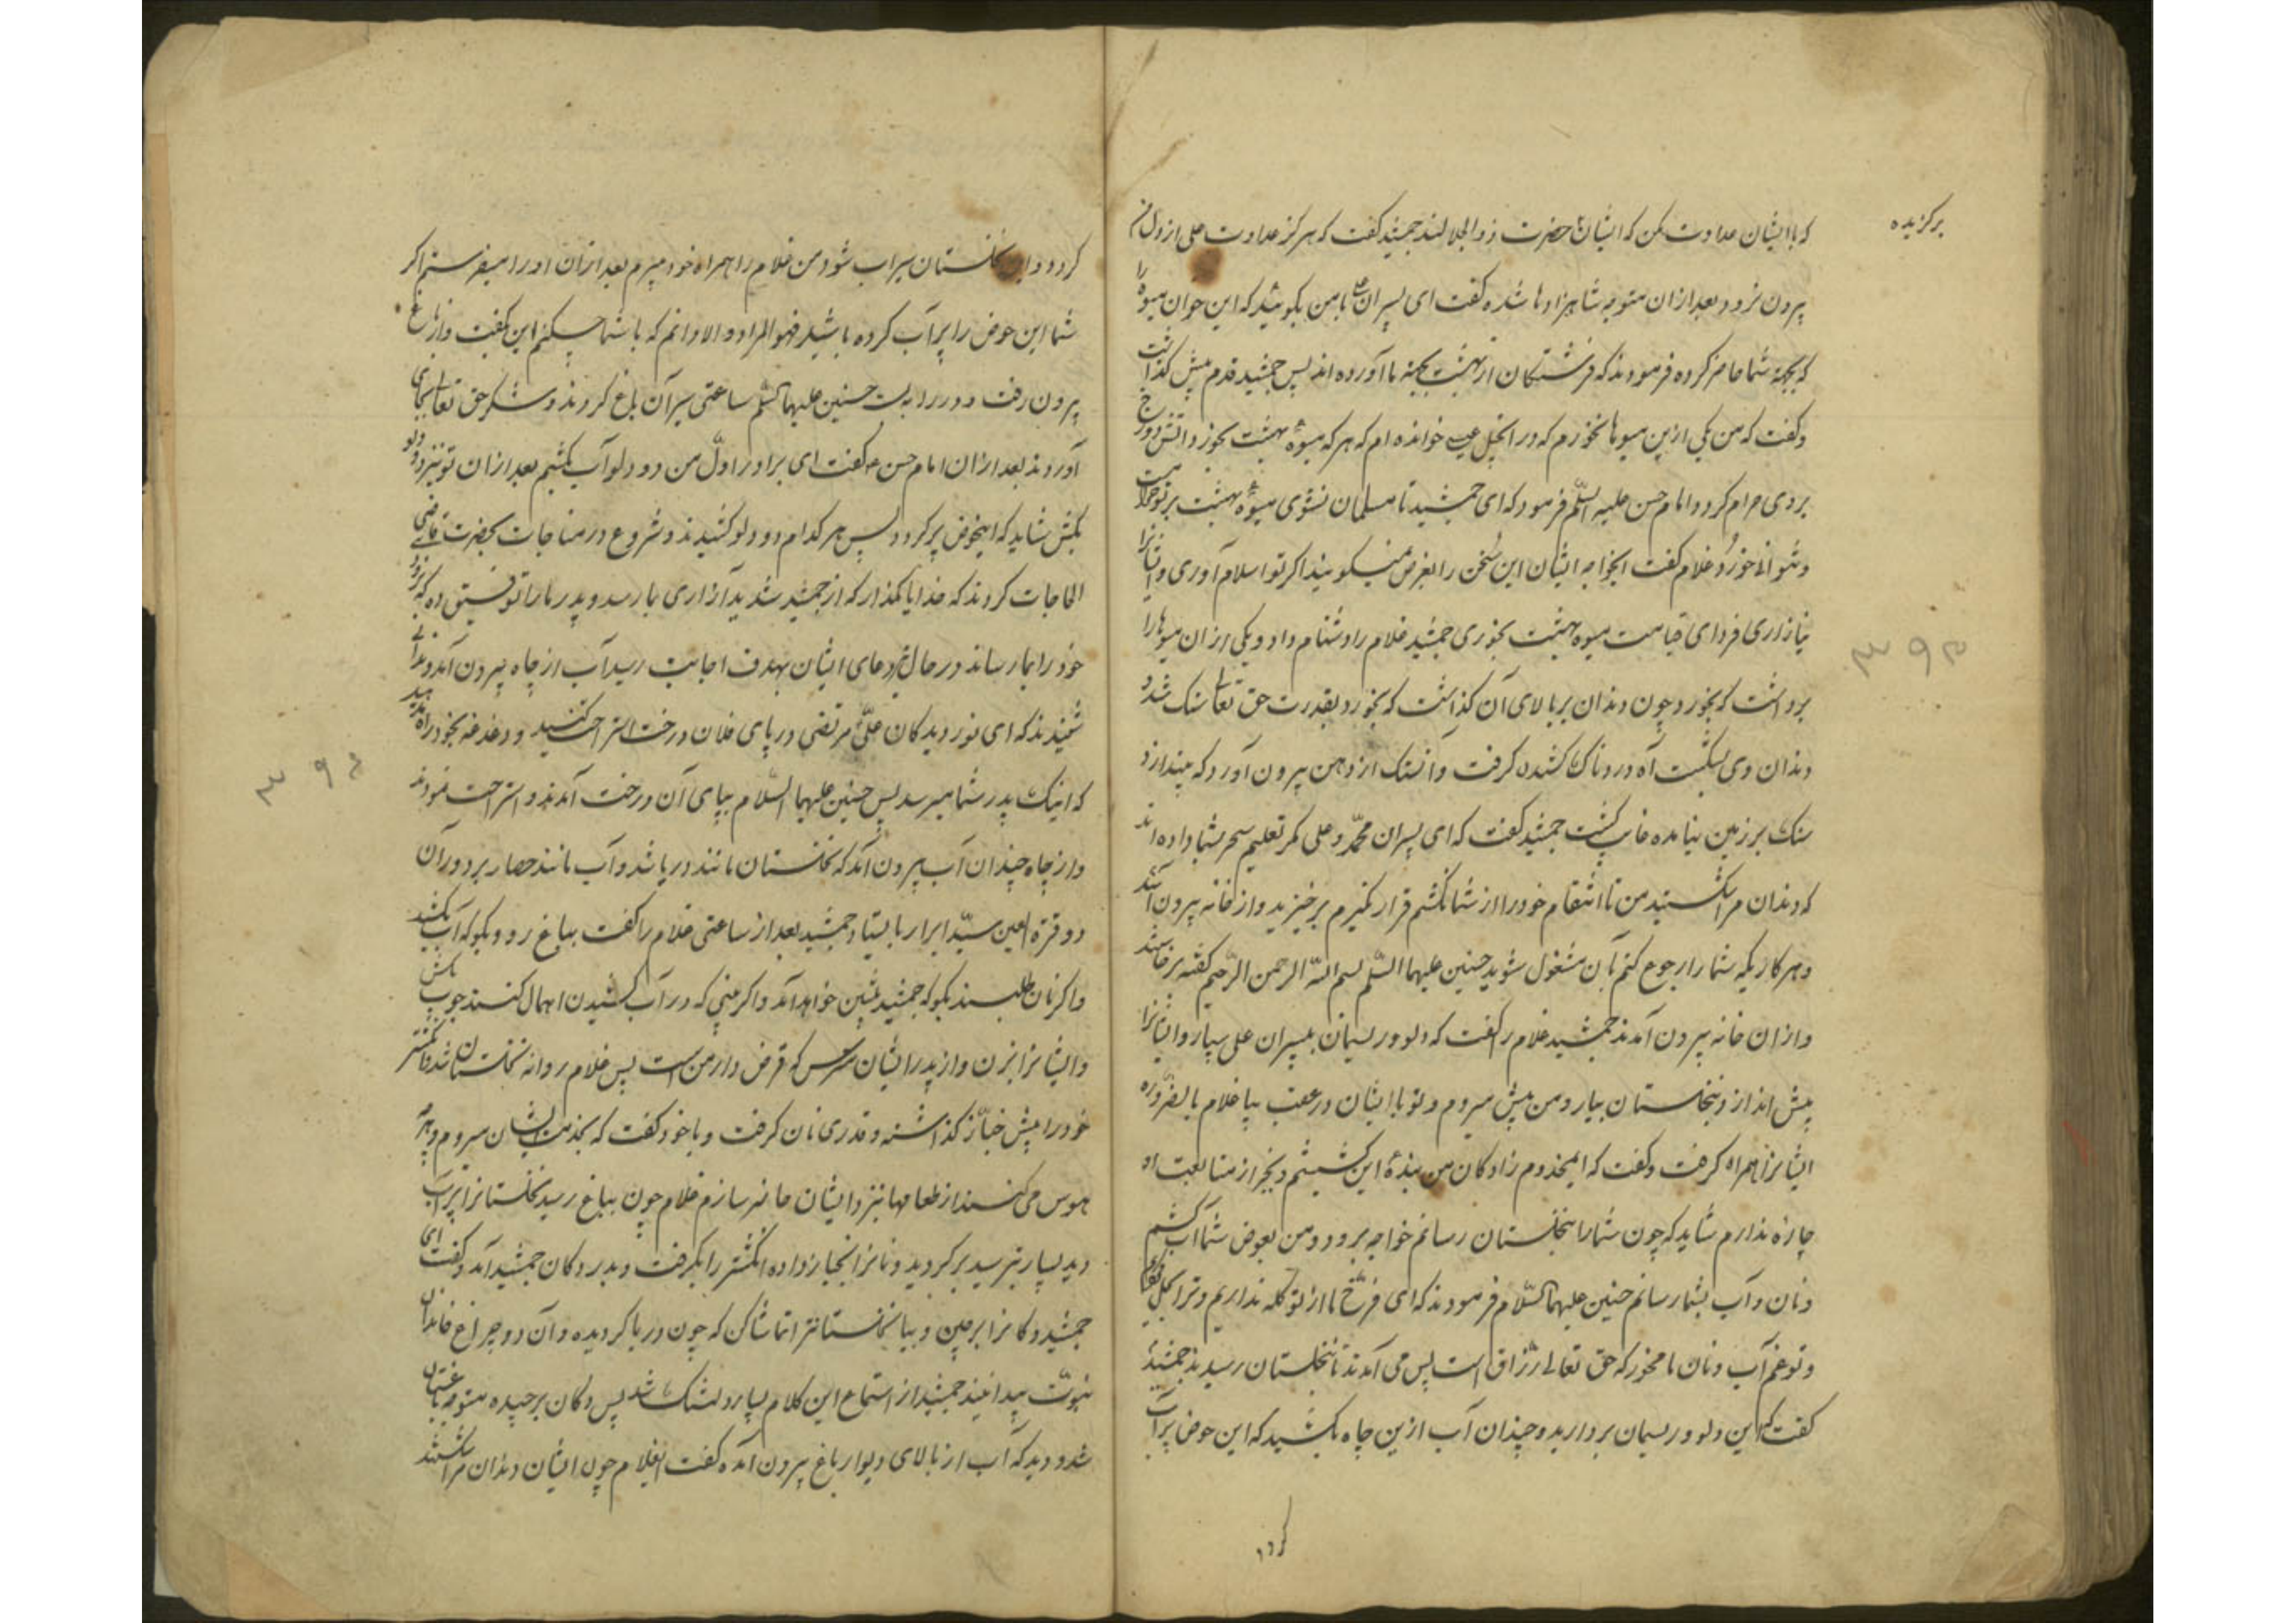 برکزیده
که با ایشان عداوت مکن که ایشان حضرت ذوالجلالند جمشید کفت که هرکز عداوت علی از دل من
بیرون نرود بعد ازان متوجه شاهزادها شده کفت ای پسران علی با من بکوئید که این جوان میوه را
که بجهة شما حاضر کرده فرمودند که فرشتکان از بهشت بجهة ما آورده اند پس جمشید قدم پیش کذاشت
و کفت که من یکی ازین میوها بخورم که در انجیل عیسی خوانده ام که هر که میوه بهشت بخورد آتش دوزخ
بر وی حرام کردد امام حسن علیه السلم فرمود که ای جمشید تا مسلمان نشوی میوه بهشت بر تو حرامست
و نتوانی خورد غلام کفت ایخواجه ایشان این سخن را بغرض نمیکویند اکر تو اسلام آوری و ایشانرا
نیازاری فردای قیامت میوه بهشت بخوری جمشید غلام را دشنام داد و یکی ازان میوها را
برداشت که بخورد چون دندان بر بالای آن کذاشت که بخورد بقدرت حق تعالی سنک شد و
دندان وی بشکست آه دردناک کشیدن کرفت و آن سنک از دهن بیرون آورد که بیندازد
سنک بر زمین نیامده غایب کشت جمشید کفت که ای پسران محمد و علی مکر تعلیم سحر بشما داده اند
که دندان مرا شکستید من تا انتقام خود را از شما نکشم قرار نکیرم برخیزید و از خانه بیرون آئید
و هر کاریکه شما را رجوع کنم بآن مشغول شوید حسنین علیهما السلم بسم الله الرحمن الرحیم کفته برخاستند
و ازان خانه بیرون آمدند جمشید غلام را کفت که دلو و ریسمان به پسران علی بسپار و ایشانرا
پیش انداز و بنخلستان بیار و من پیش میروم و تو با ایشان در عقب بیا غلام بالضروره
ایشانرا همراه کرفت و کفت که ایمخدوم زادکان من بنده این کشیشم و بجز از متابعت او
چاره ندارم شاید که چون شما را بنخلستان رسانم خواجه برود و من بعوض شما آب کشم
و نان و آب بشما رسانم حسنین علیهما السلام فرمودند که ای فرخ ما از تو کله نداریم و ترا بحل کردیم
و تو غم آب و نان ما مخور که حق تعالی رزاق است پس می آمدند تا بنخلستان رسیدند جمشید
کفت که این دلو و ریسمان بردارید و چندان آب ازین چاه بکشید که این حوض پر آب
کردد
کردد و این نخلستان سیراب شود من غلام را همراه خود میبرم بعد ازان او را میفرستم اکر
شما این حوض را پر آب کرده باشید فهو المراد و الا دانم که با شما چکنم این کفت و از باغ
بیرون رفت و در را ببست حسنین علیهما السلم ساعتی سیر آن باغ کردند و شکر حق تعالی بجای
آوردند بعد ازان امام حسن ع کفت ای برادر اول من دو دلو آب بکشم بعد ازان تو نیز دو دلو
بکش شاید که اینحوض پر کردد پس هر کدام دو دلو کشیدند و شروع در مناجات بحضرت قاضی
الحاجات کردند که خدایا مکذار که از جمشید شدید آزاری بما رسد و پدر ما را توفیق ده که بزودی
خود را بما رساند در حال تیر دعای ایشان بهدف اجابت رسید آب از چاه بیرون آمد و ندائی
شنیدند که ای نور دیدکان علی مرتضی در پای فلان درخت استراحت کنید و دغدغه بخود راه ندهید
که اینک پدر شما میرسد پس حسنین علیهما السلام بپای آن درخت آمدند و استراحت نمودند
و از چاه چندان آب بیرون آمد که نخلستان مانند دریا شد و آب مانند حصار بر دور آن
دو قرة العین سید ابرار بایستاد جمشید بعد از ساعتی غلام را کفت بباغ رو و بکو که آب بکشید
و اکر نان طلبند بکو که جمشید پیشین خواهد آمد و اکر بینی که در آب کشیدن اهمال کنند چوب بکش
و ایشانرا بزن و از پدر ایشان مترس که قرض دار من است پس غلام روانه نخلستان شد و انکشتر
خود را پیش خباز کذاشته و قدری نان کرفت و با خود کفت که بخدمت ایشان میروم و هر چه
هوس می کنند از طعامها نزد ایشان حاضر سازم غلام چون بباغ رسید نخلستانرا پر آب
دید بسیار بترسید برکردید و نانرا بخباز داده انکشتر را بکرفت و بدر دکان جمشید آمد و کفت ای
جمشید دکانرا برچین و بیا نخلستانترا تماشا کن که چون دریا کردیده و آن دو چراغ خاندان
نبوت پیدا نیند جمشید از استماع این کلام بسیار دلتنک شد پس دکان برچیده متوجه باغستان
شد و دید که آب از بالای دیوار باغ بیرون آمده کفت ایغلام چون ایشان دندان مرا شکستند